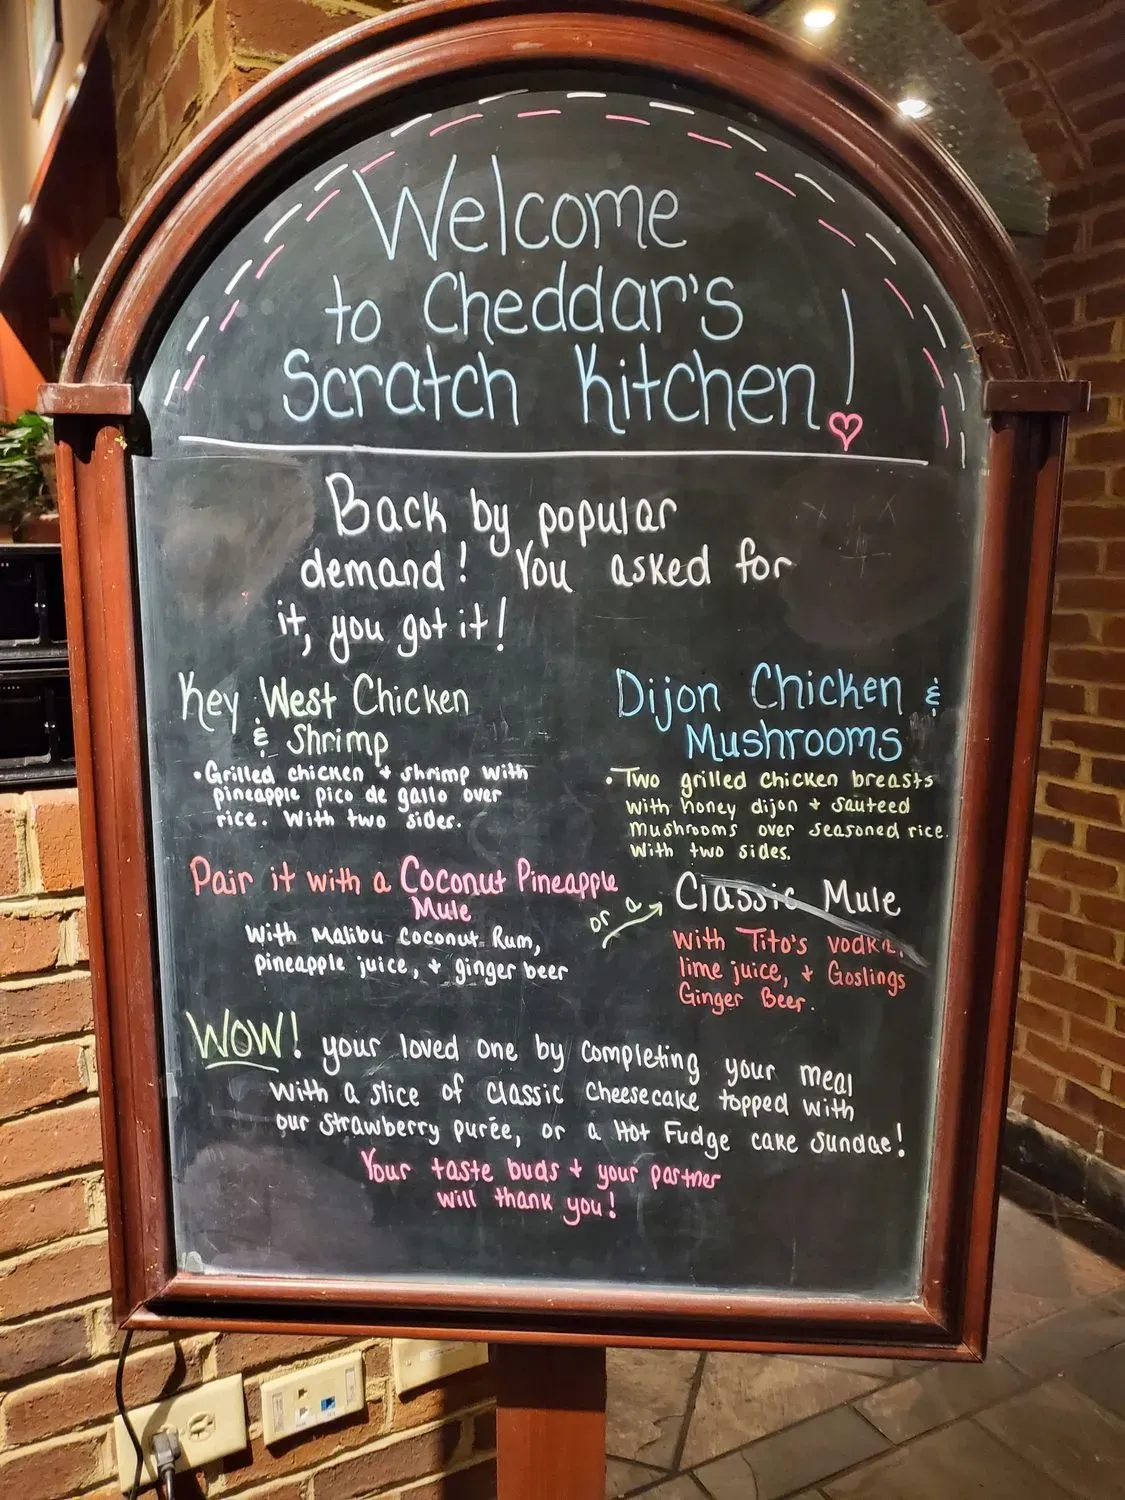 Welcome
to Cheddar's
Scratch Kitchen!
Back by popular
demand! You asked for
it, you got it!
Key West Chicken
& Shrimp
• Grilled chicken + shrimp with
pineapple pico de gallo over
rice. With two sides.
Dijon Chicken &
Mushrooms
• Two grilled chicken breasts
with honey dijon + sauteed
mushrooms over seasoned rice.
With two sides.
Pair it with a Coconut Pineapple
Mule
With Malibu Coconut Rum,
pineapple juice, + ginger beer
or a
Classic Mule
with Tito's vodka,
lime juice, + Goslings
Ginger Beer.
WOW! your loved one by completing your meal
with a slice of classic cheesecake topped with
our strawberry purée, or a Hot Fudge cake sundae!
Your taste buds + your partner
will thank you!